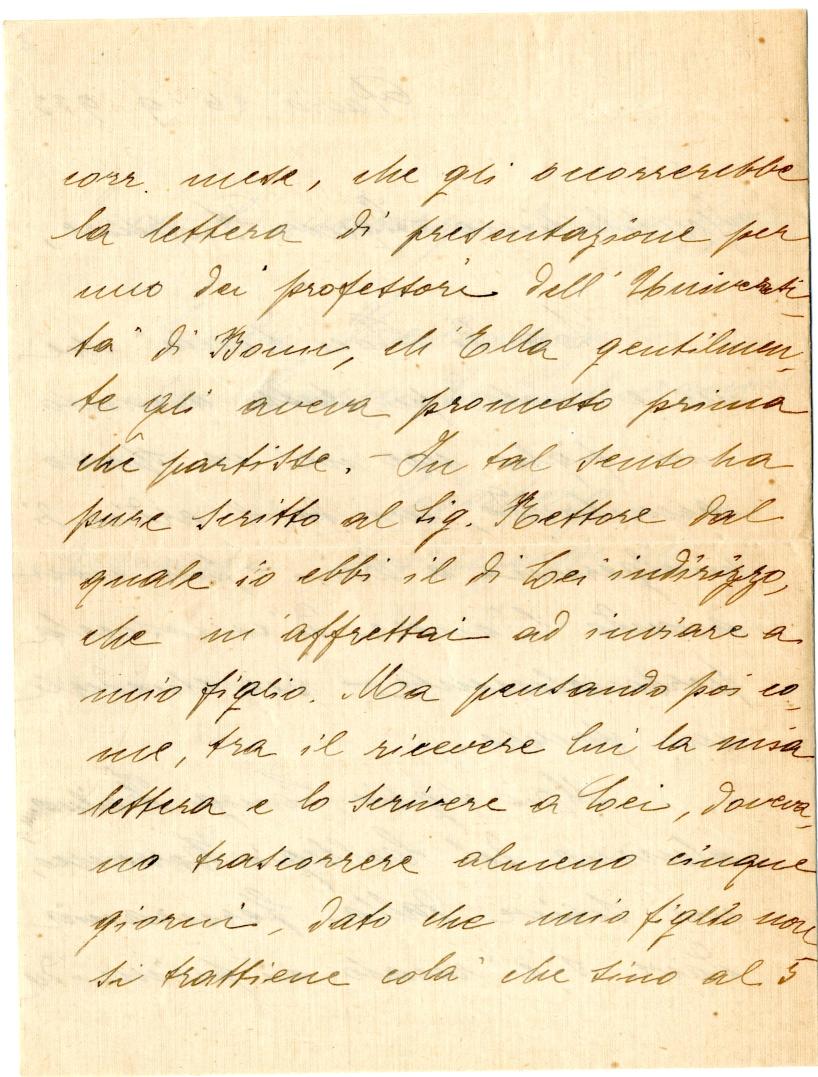 corr. mese, che gli occorrerebbe
la lettera di presentazione per
uno dei professori dell'Universi-
tà di Bonn, ch'Ella gentilmen-
te gli aveva promesso prima
che partisse. - In tal senso ha
pure scritto al Sig. Rettore dal
quale io ebbi il di Lei indirizzo,
che m'affrettai ad inviare a
mio figlio. Ma pensando poi co-
me, tra il ricevere lui la mia
lettera e lo scrivere a Lei, doveva-
no trascorrere almeno cinque
giorni, dato che mio figlio non
si trattiene colà che sino al 5